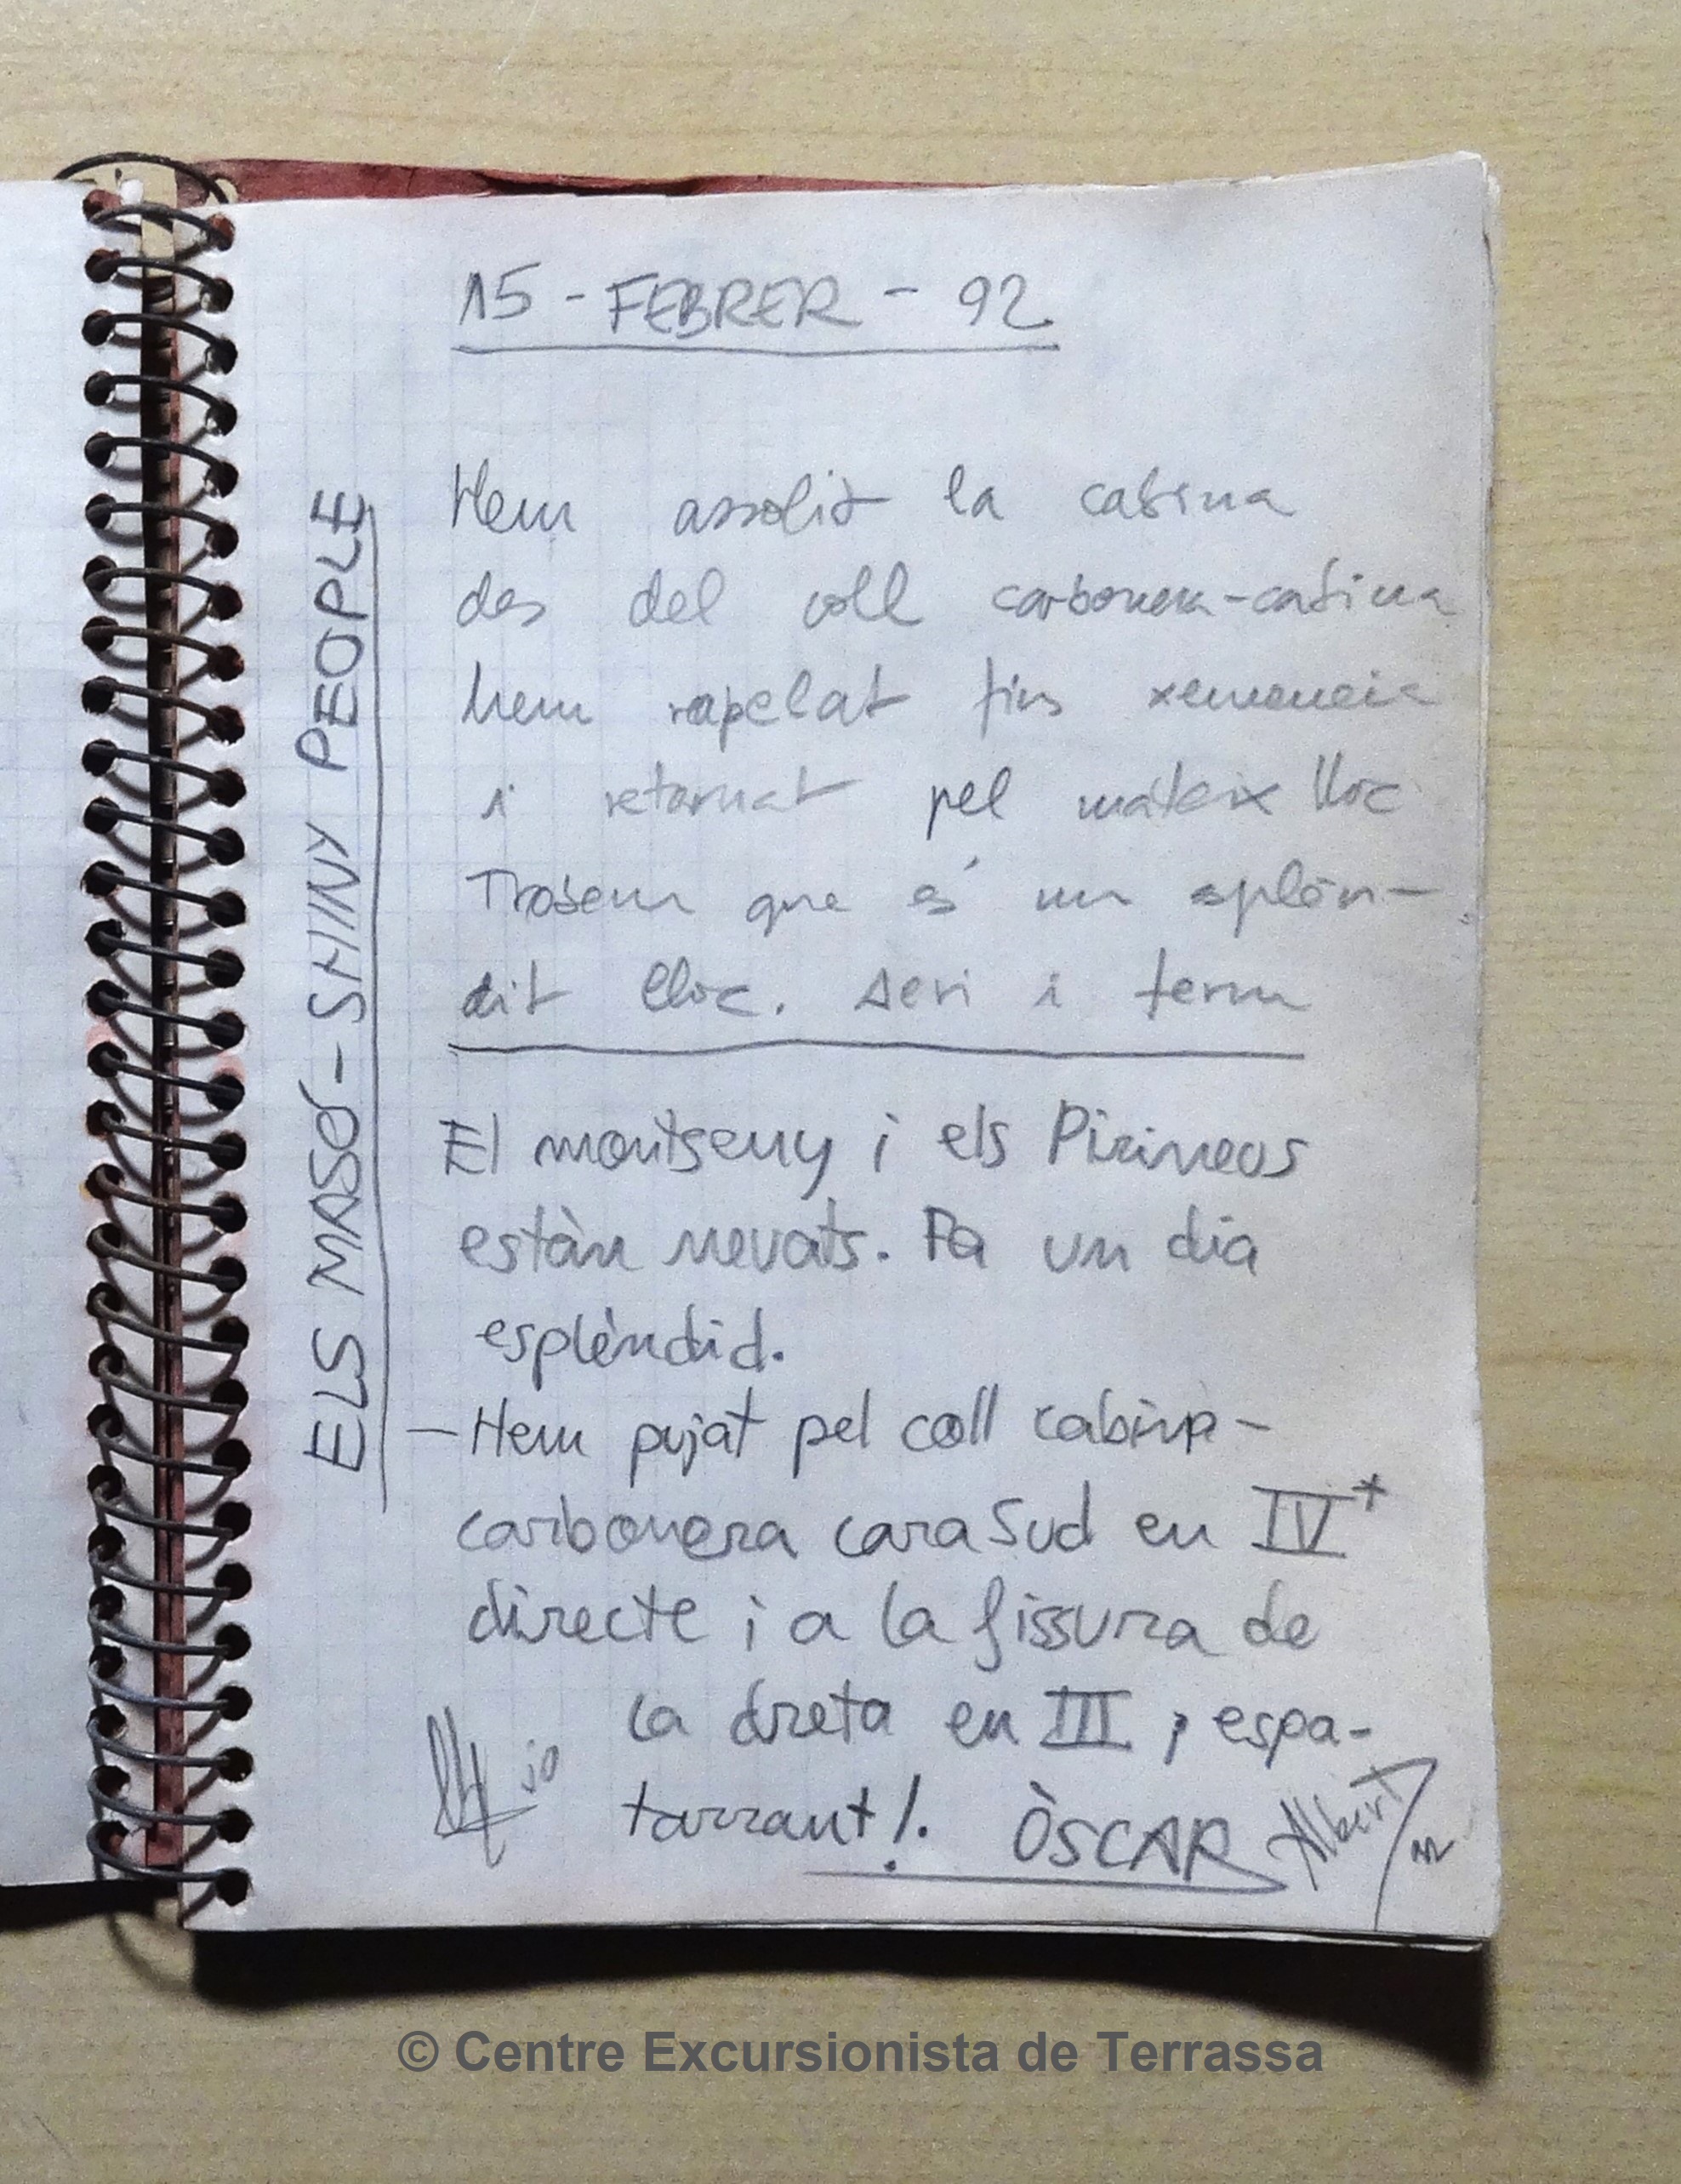 15 - FEBRER - 92
ELS MASÓ - SHINY PEOPLE
Hem assolit la cabina
des del coll carbonera-cabina
hem rapelat fins xemeneia
i retornat pel mateix lloc
Trobem que és un esplèn-
dit lloc. seri i ferm
El montseny i els Pirineos
estàn nevats. Fa un dia
esplèndid.
- Hem pujat pel coll cabina-
carbonera cara Sud en IV+
directe i a la fissura de
la dreta en III, espa-
tarrant!. ÒSCAR Albert
© Centre Excursionista de Terrassa